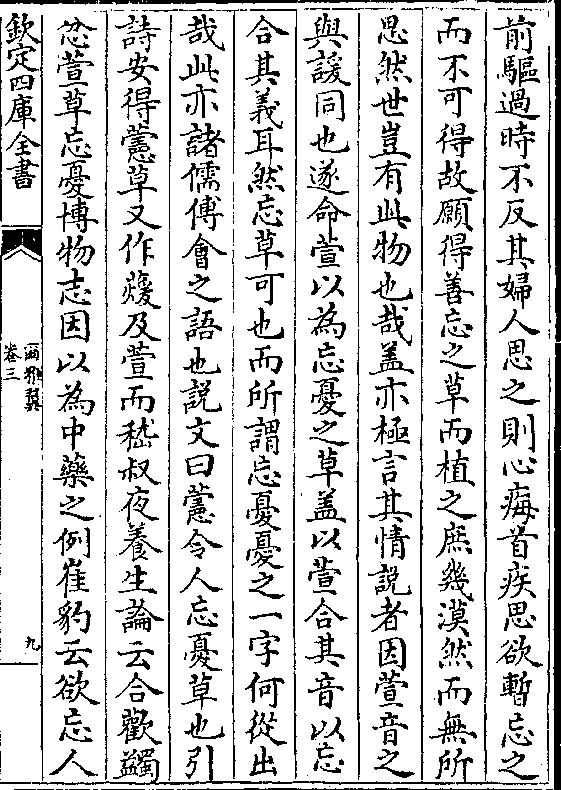 前驅過時不反其婦人思之則心痗首疾思欲暫忘之
而不可得故願得善忘之草而植之庶幾漠然而無所
思然世豈有此物也哉盖亦極言其情説者因萱音之
與諼同也遂命萱以為忘憂之草盖以萱合其音以忘
合其義耳然忘草可也而所謂忘憂憂之一字何從出
哉此亦諸儒傅會之語也説文曰藼令人忘憂草也引
詩安得藼草又作蕿及萱而嵇叔夜養生論云合歡蠲
忿萱草忘憂博物志因以為中藥之例崔豹云欲忘人
欽定四庫全書
爾雅翼
卷三
九